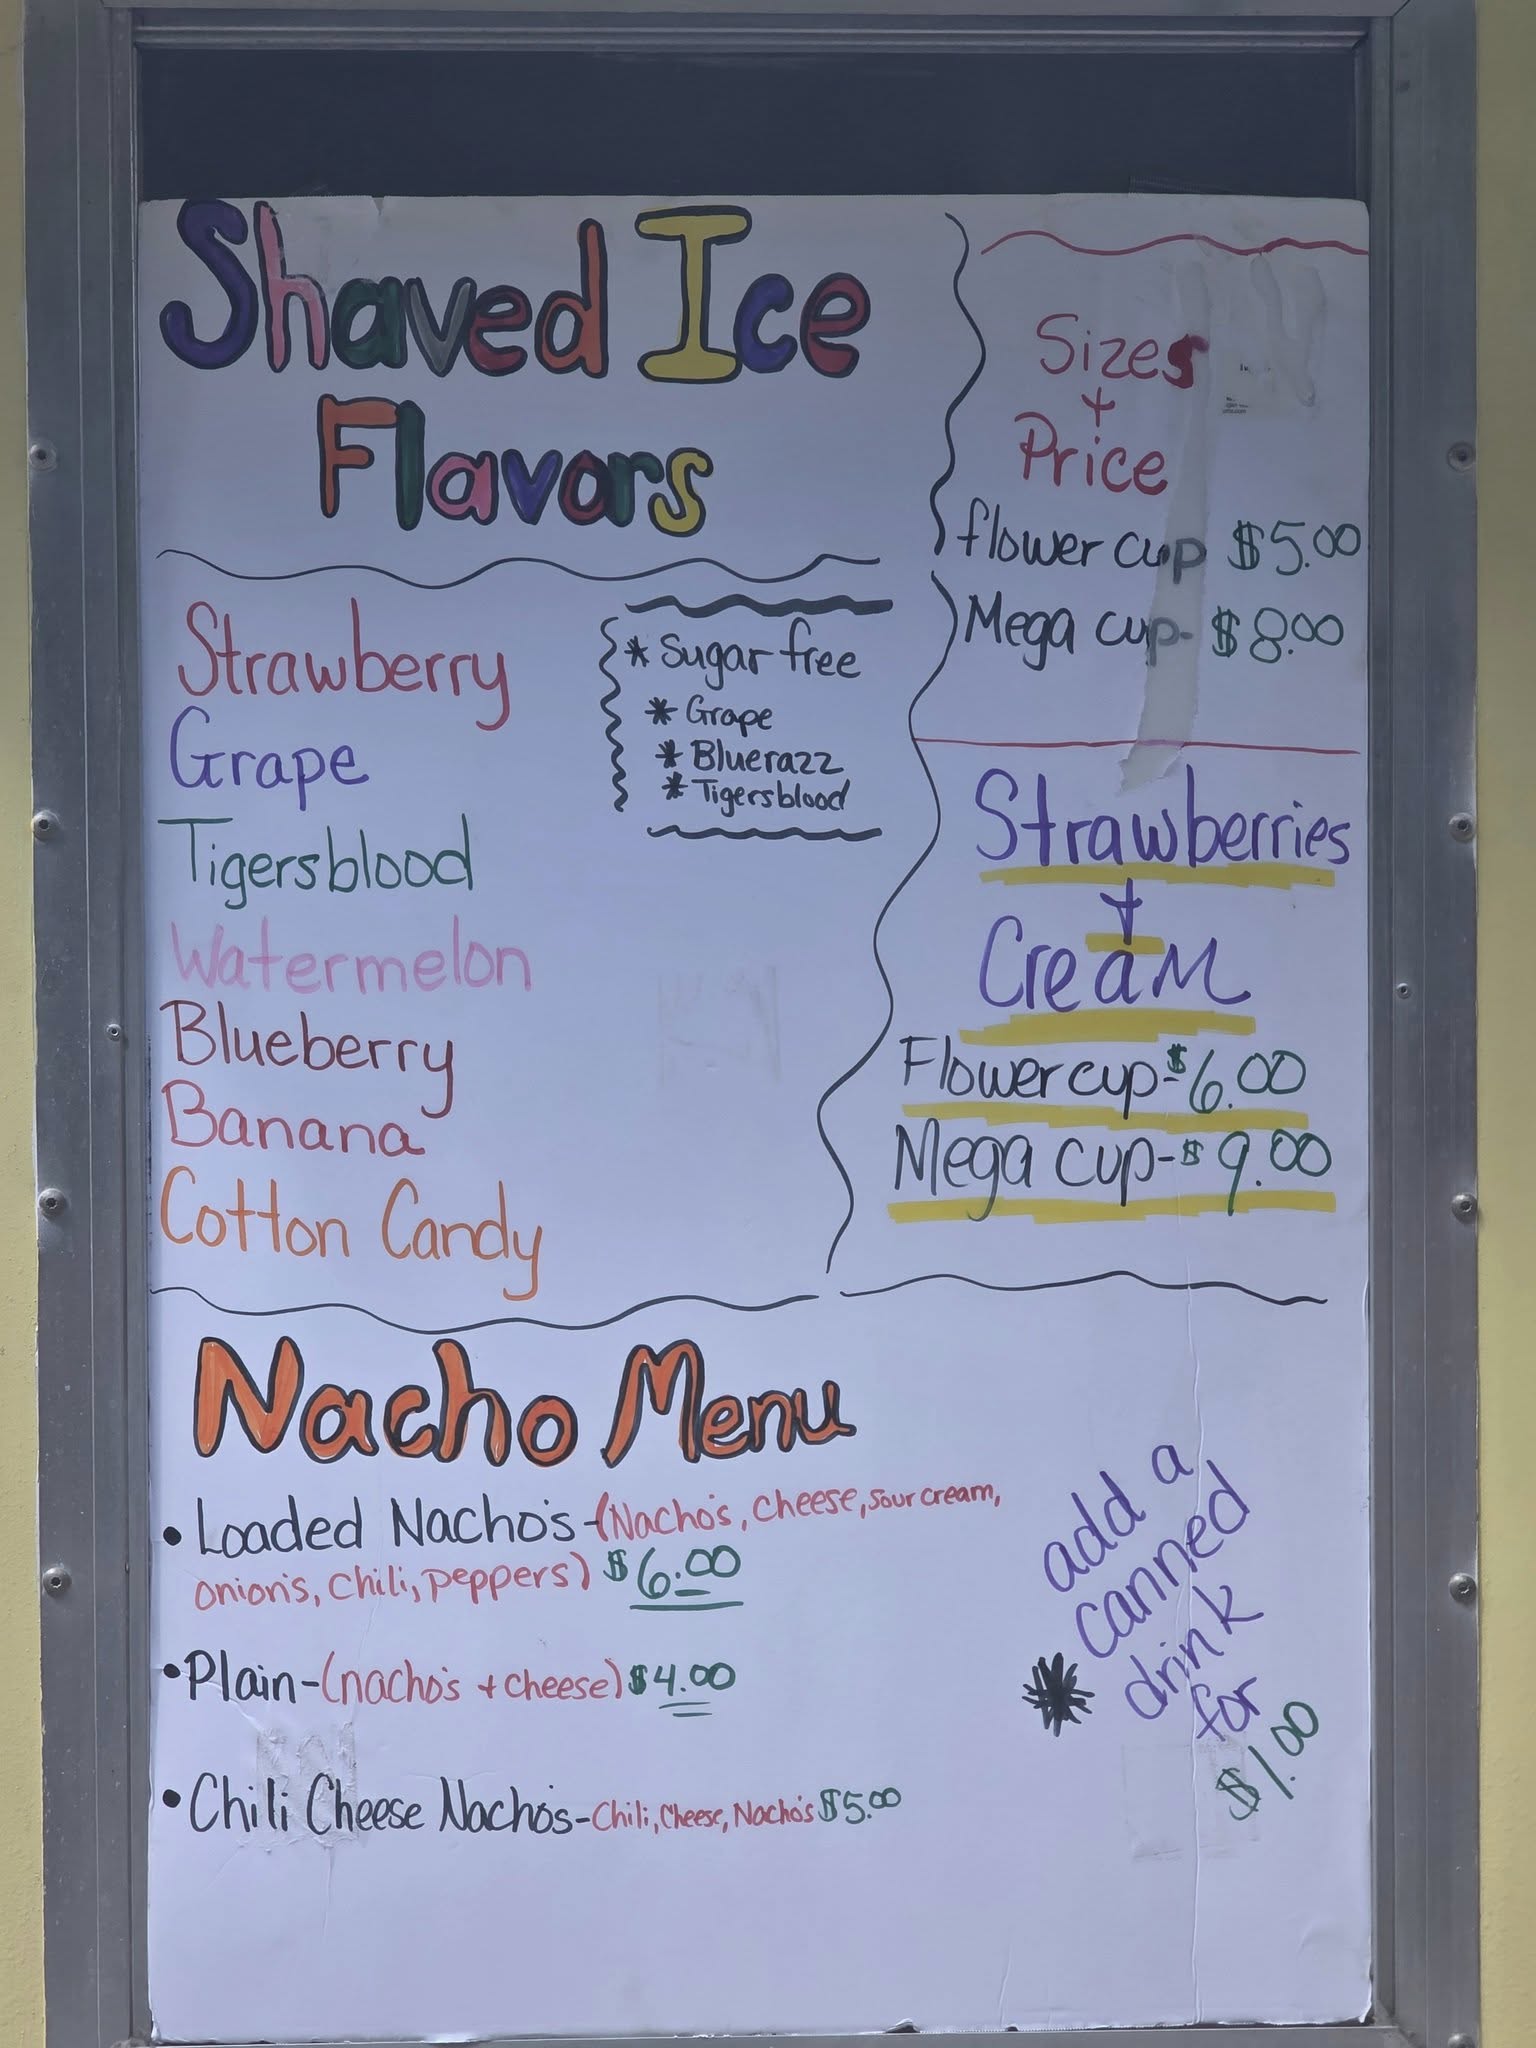 Shaved Ice
Flavors
Strawberry
Grape
Tigersblood
Watermelon
Blueberry
Banana
Cotton Candy
* Sugar free
* Grape
* Bluerazz
* Tigersblood
Sizes
+
Price
flower cup $5.00
Mega cup- $8.00
Strawberries
+
Cream
Flower cup-$6.00
Mega cup-$9.00
Nacho Menu
• Loaded Nacho's-(Nacho's, cheese, sour cream,
onion's, chili, peppers) $6.00
• Plain-(nacho's + cheese) $4.00
• Chili Cheese Nacho's-Chili, Cheese, Nacho's $5.00
* add a
canned
drink
for
$1.00